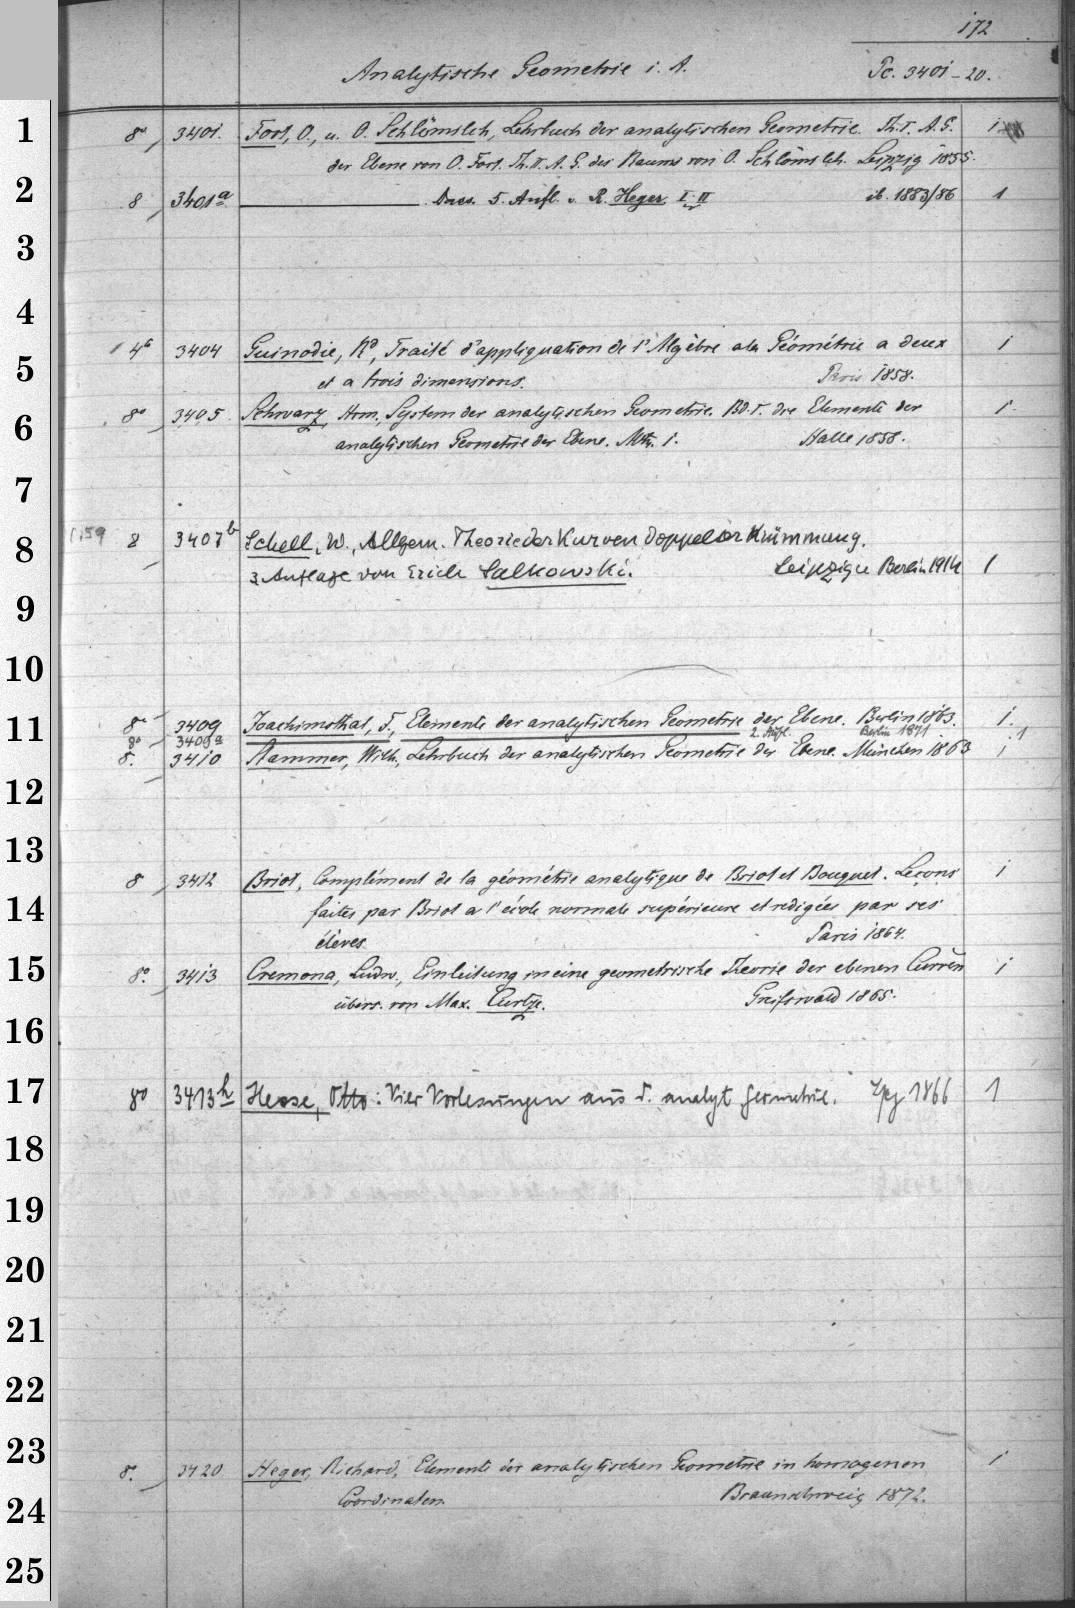 172
Analytische Geometrie i. A. Pc. 3401-20.
1 8° 3401. Fort, O., u. O. Schlömilch, Lehrbuch der analytischen Geometrie. Th. I. A. G. 1
der Ebene von O. Fort. Th. II. A. G. des Raums von O. Schlömilch. Leipzig 1855.
2 8 3401a Dass. 5. Aufl. v. R. Heger. I. II ib. 1883/86 1
3
4
4° 3404 Guinodie, Rd, Traité d'appliquation de l'Algèbre a la Géométrie a deux 1
5 et a trois dimensions. Paris 1858.
6 8° 3405. Schwarz, Hrm., System der analytischen Geometrie. Bd. I. die Elemente der 1.
analytischen Geometrie der Ebene. Abth. 1. Halle 1858.
7
8 8 3407b Schell, W., Allgem. Theorie der Kurven doppelter Krümmung.
3. Auflage von Erich Salkowski. Leipzig u Berlin 1914 1
9
10
11 8° 3409 Joachimsthal, F., Elemente der analytischen Geometrie der Ebene. Berlin 1863. 1.
8° 3409a 2. Aufl. Berlin 1871 1
8. 3410 Stammer, Wilh., Lehrbuch der analytischen Geometrie der Ebene. München 1863 1
12
13
8 3412 Briot, Complément de la géométrie analytique de Briot et Bouquet. Leçons 1
14 faites par Briot a l'école normale supérieure et redigées par ses
élèves. Paris 1864.
15 8°. 3413 Cremona, Ludw., Einleitung in eine geometrische Theorie der ebenen Curven 1
übers. von Max. Curtze. Greifswald 1865.
16
17 8° 3413h Hesse, Otto: Vier Vorlesungen aus d. analyt Geometrie. Lpz 1866 1
18
19
20
21
22
23 8. 3420 Heger, Richard, Elemente der analytischen Geometrie in homogenen 1
24 Coordinaten. Braunschweig 1872.
25